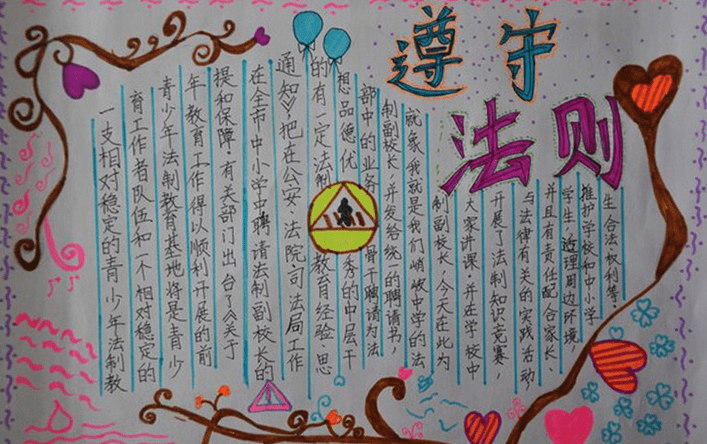 遵守
法则
一支相对稳定的青少年法制教
育工作者队伍和一个相对稳定的
青少年法制教育基地将是青少
年教育工作得以顺利开展的前
提和保障,有关部门出台了《关于
在全市中小学中聘请法制副校长的
通知》,把在公安、法院司法局工作
的有一定法制教育经验,思
想品德优秀的中层干
部中的业务骨干聘请为法
制副校长,并发给统一的聘请书,
就象我就是我们峭岐中学的法
制副校长,今天在此为
大家讲课,并在学校中
开展了法制知识竞赛,
与法律有关的实践活动
并且有责任配合家长、
学生,治理周边环境,
维护学校和中小学
生合法权利等